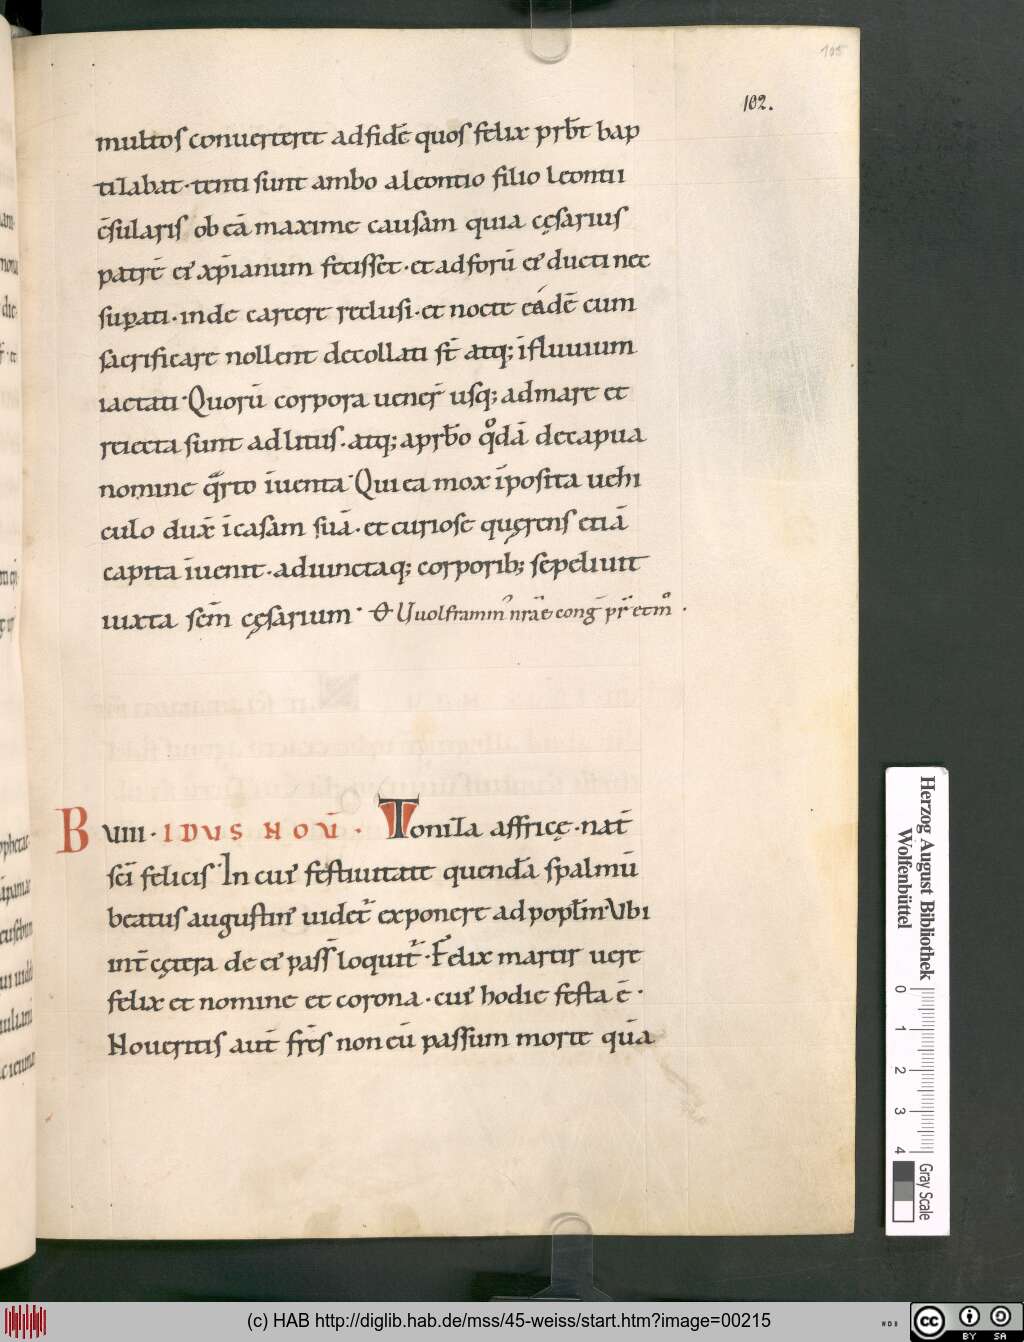 105
102.
multos conuerteret ad fidē quos felix prƀt bap
tizabat · tenti sunt ambo a leontio filio leontii
c̄sularis ob eā maxime causam quia cęsarius
patrē ei᾽ xp̄ianum fecisset · et ad forū ei᾽ ducti nec
supati · inde carcere reclusi · et nocte eadē cum
sacrificare nollent decollati st̄ atq; ī fluuium
iactati · Quorū corpora uener̄ usq; ad mare et
reiecta sunt ad litus · atq; a prƀo qͦdā de capua
nomine qͣrto īuenta · Qui ea mox īposita uehi
culo dux̄ ī casam suā · et curiose quęrens etiā
capita īuenit · adiunctaq; corporib; sepeliuit
iuxta sc̄m cęsarium · & Uuolframm᾽ nrāe cong̅ pr̄ et mͦ ·
B VIIII · IDUS NOU̅ · Toniza affricę · nat̄
sc̄i felicis · In cui᾽ festiuitate quendā spalmū
beatus augustin᾽ uidet᷑ exponere ad popl̄m · Ubi
int̄ cętera de ei᾽ pass̄ loquit᷑ · Felix martir uere
felix et nomine et corona · cui᾽ hodie festa ē ·
Noueritis aut̄ fr̄es non eū passum morte quā
Herzog August Bibliothek
Wolfenbüttel
0 1 2 3 4
Gray Scale
(c) HAB http://diglib.hab.de/mss/45-weiss/start.htm?image=00215
WDB
cc BY SA